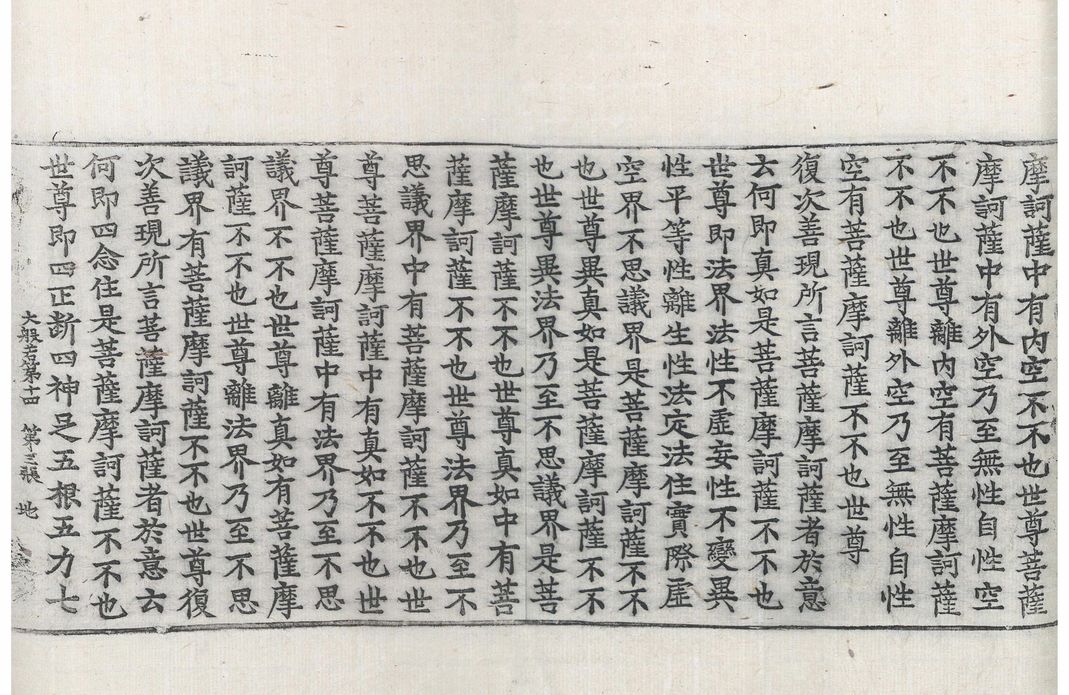 摩訶薩中有內空不不也世尊菩薩
摩訶薩中有外空乃至無性自性空
不不也世尊離內空有菩薩摩訶薩
不不也世尊離外空乃至無性自性
空有菩薩摩訶薩不不也世尊
復次善現所言菩薩摩訶薩者於意
云何即真如是菩薩摩訶薩不不也
世尊即法界法性不虛妄性不變異
性平等性離生性法定法住實際虛
空界不思議界是菩薩摩訶薩不不
也世尊異真如是菩薩摩訶薩不不
也世尊異法界乃至不思議界是菩
薩摩訶薩不不也世尊真如中有菩
薩摩訶薩不不也世尊法界乃至不
思議界中有菩薩摩訶薩不不也世
尊菩薩摩訶薩中有真如不不也世
尊菩薩摩訶薩中有法界乃至不思
議界不不也世尊離真如有菩薩摩
訶薩不不也世尊離法界乃至不思
議界有菩薩摩訶薩不不也世尊復
次善現所言菩薩摩訶薩者於意云
何即四念住是菩薩摩訶薩不不也
世尊即四正斷四神足五根五力七
大般若第十四　第三張　地